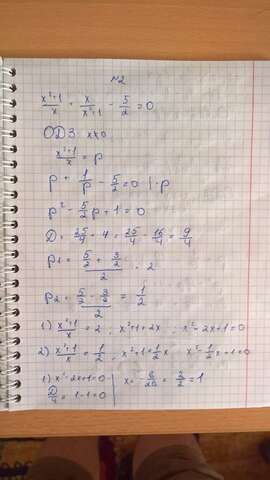 №2
x²+1/x + x/x²+1 - 5/2 = 0
ОДЗ: x≠0
x²+1/x = p
p + 1/p - 5/2 = 0 | · p
p² - 5/2 p + 1 = 0
D = 25/4 - 4 = 25/4 - 16/4 = 9/4
p₁ = 5/2 + 3/2 / 2 = 2
p₂ = 5/2 - 3/2 / 2 = 1/2
1) x²+1/x = 2 ; x²+1=2x ; x²-2x+1=0
2) x²+1/x = 1/2 ; x²+1=1/2x x²-1/2x+1=0
1) x²-2x+1=0 | x = -b/2a = 2/2 = 1
D/4 = 1-1=0